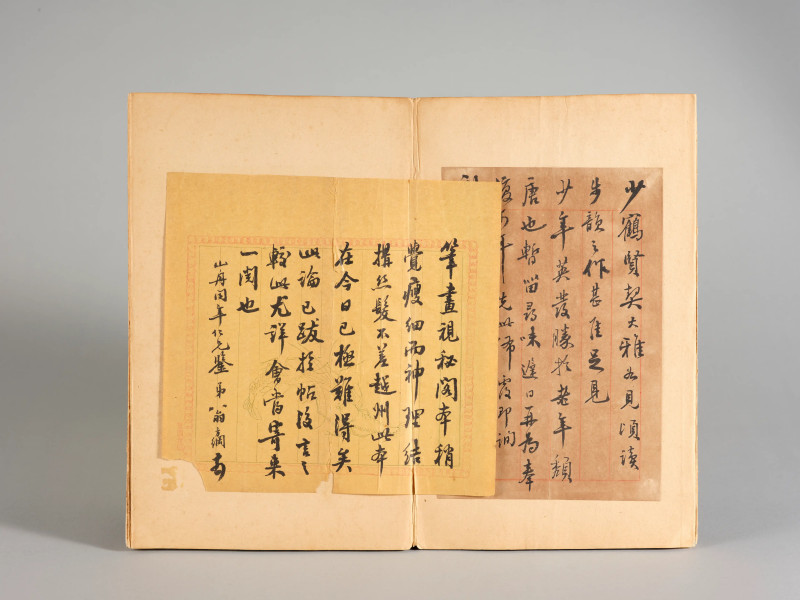 少鶴賢契大雅如見頃讀
步韻之作甚佳足見
少年英發勝於老年頹
唐也暫留尋味遲日再為奉
復 先此布覆即詢
筆畫視秘閣本稍
覺瘦細而神理結
構絲髮不差越州此本
在今日已極難得矣
此論已跋於帖後言之
較此尤詳會當寄來
一閱也
山舟同年仁兄鑒 弟翁方綱